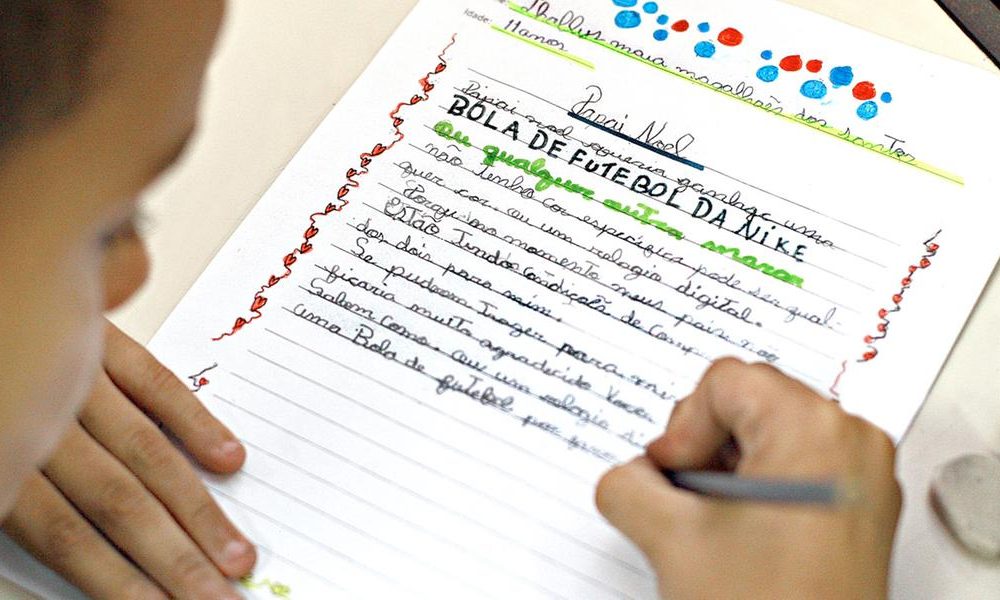 Thallys maia magalhães dos santos
Idade: 11 anos
Papai Noel
Papai noel, queria ganhar uma
BOLA DE FUTEBOL DA NIKE
ou qualquer outra marca
não tenho cor específica pode ser qual-
quer cor ou um relógio digital.
Porquê no momento meus pais não
Estão Tendo condição de comprar
dos dois para mim.
Se pudesse Trazer para mim
ficaria muito agradecido
com ou um relógio
uma Bola de futebol por